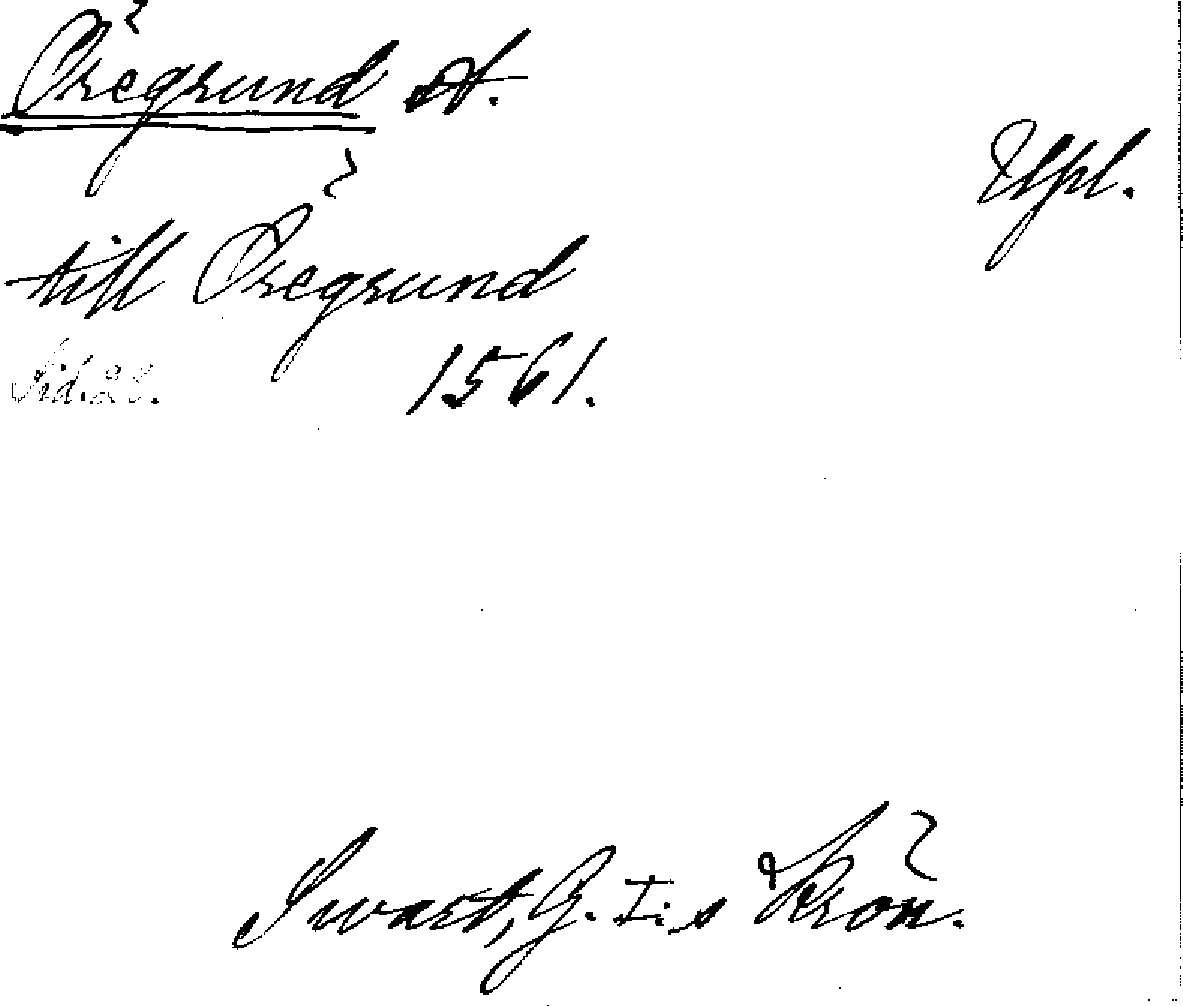 Öregrund st.
Upl.
till Öregrund
1561.
Swart, G. I:s Krön.